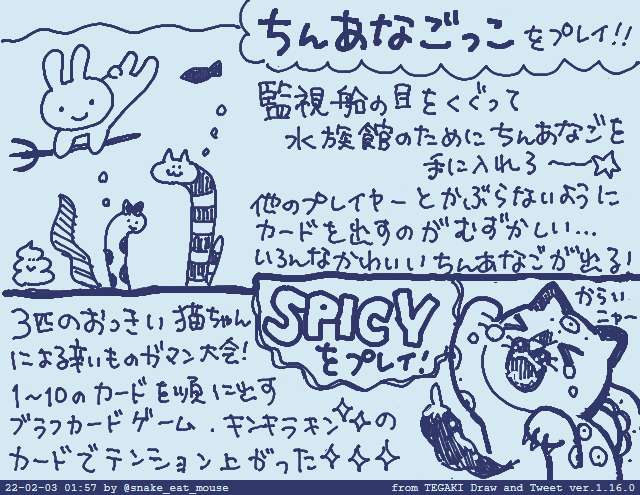 ちんあなごっこ をプレイ!!
監視船の目をくぐって
水族館のためにちんあなごを
手に入れろ〜☆
他のプレイヤーとかぶらないように
カードを出すのがむずかしい…
いろんなかわいいちんあなごが出る!
SPICY
をプレイ!
からい
ニャ〜
3匹のおっきい猫ちゃん
による辛いものガマン大会!
1〜10のカードを順に出す
ブラフカードゲーム.キンキラキンの
カードでテンション上がった
22-02-03 01:57 by @snake_eat_mouse
from TEGAKI Draw and Tweet ver.1.16.0